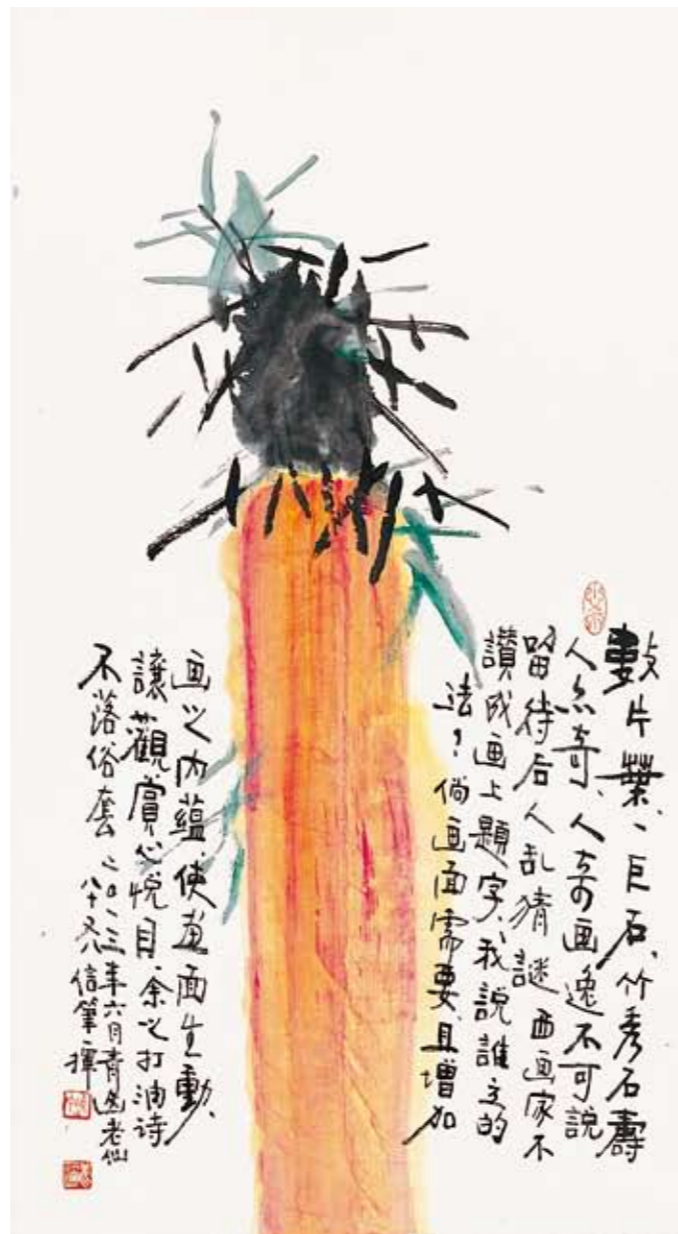 數片葉、一巨石、竹秀石壽
人亦奇、人奇画逸不可說
留待后人乱猜謎 西画家不
讚成画上題字、我說誰立的
法？倘画面需要、且增加
画之内蕴、使畫面生動、
讓觀賞心悦目、余以打油诗
不落俗套 二〇一三年六月青老仙
八十信筆一揮